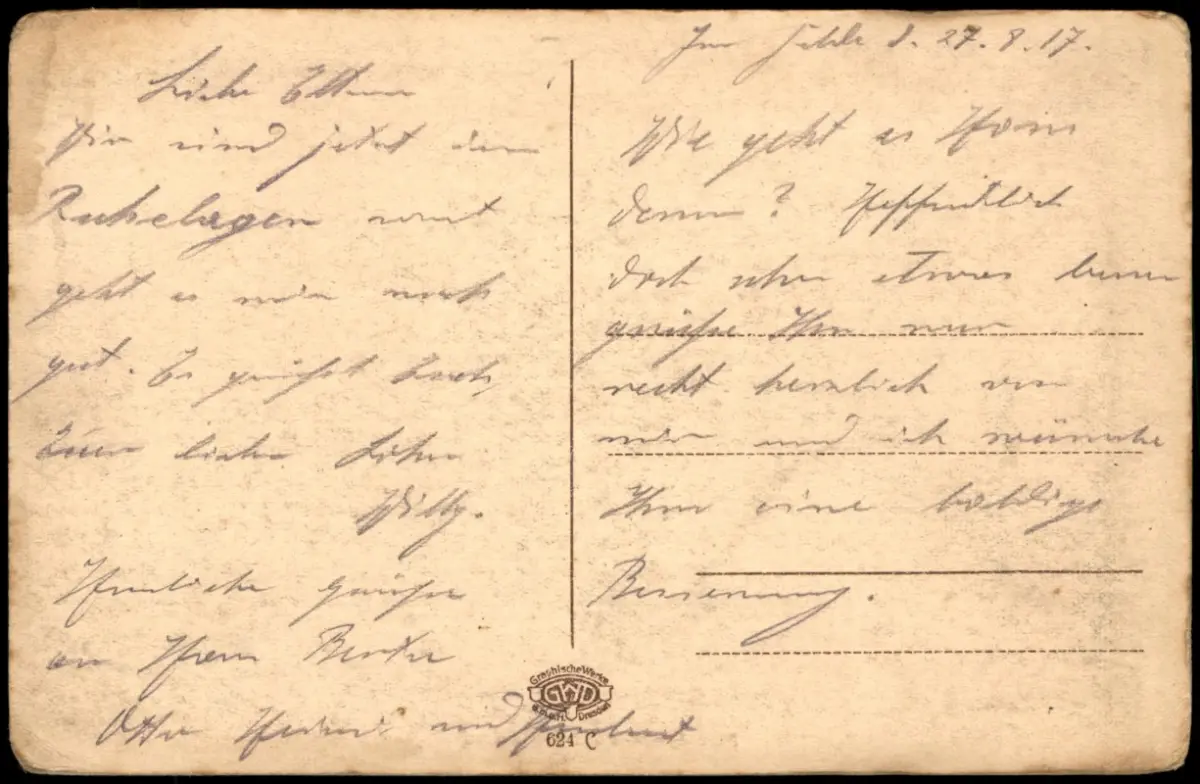 Im Felde d. 27.8.17.
Liebe Eltern
Wir sind jetzt in
Ruhelagen sonst
geht es mir noch
gut. Es grüßt Euch
Euer lieber Sohn
Willy.
Herzliche Grüße
an Herrn
Otto Heini und Herbert
Wie geht es Herrn
denn? Hoffentlich
doch schon etwas besser
grüße Ihn nur
recht herzlich von
mir und ich wünsche
Ihm eine baldige
Besserung.
Graphische Werke
GWD
G.m.b.H. Dresden
624 C